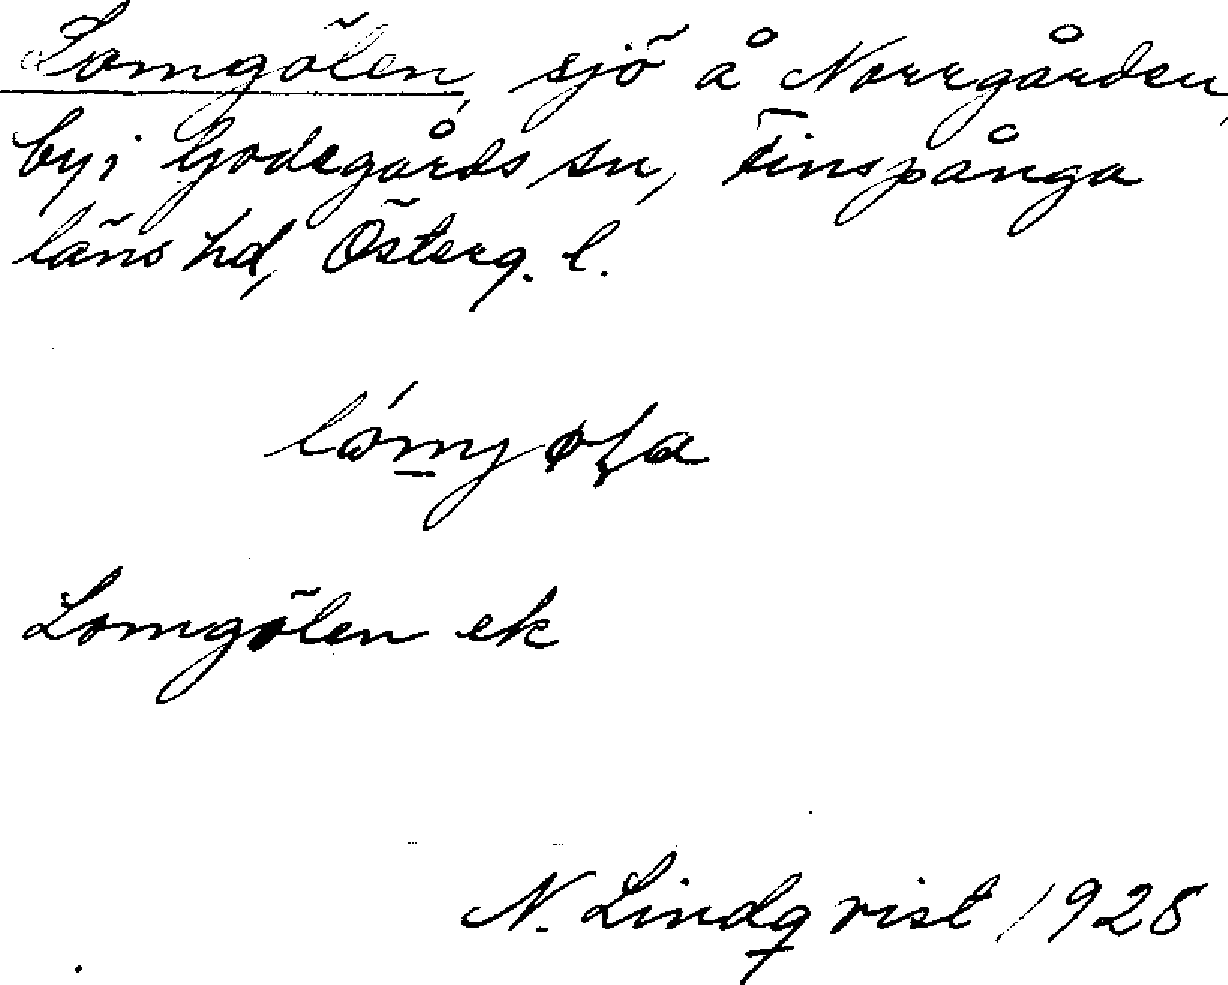 Lomgölen, sjö å Norrgården,
by i Godegårds sn, Finspånga
läns hd, Österg. l.
Lomgölen ek
N. Lindqvist 1928